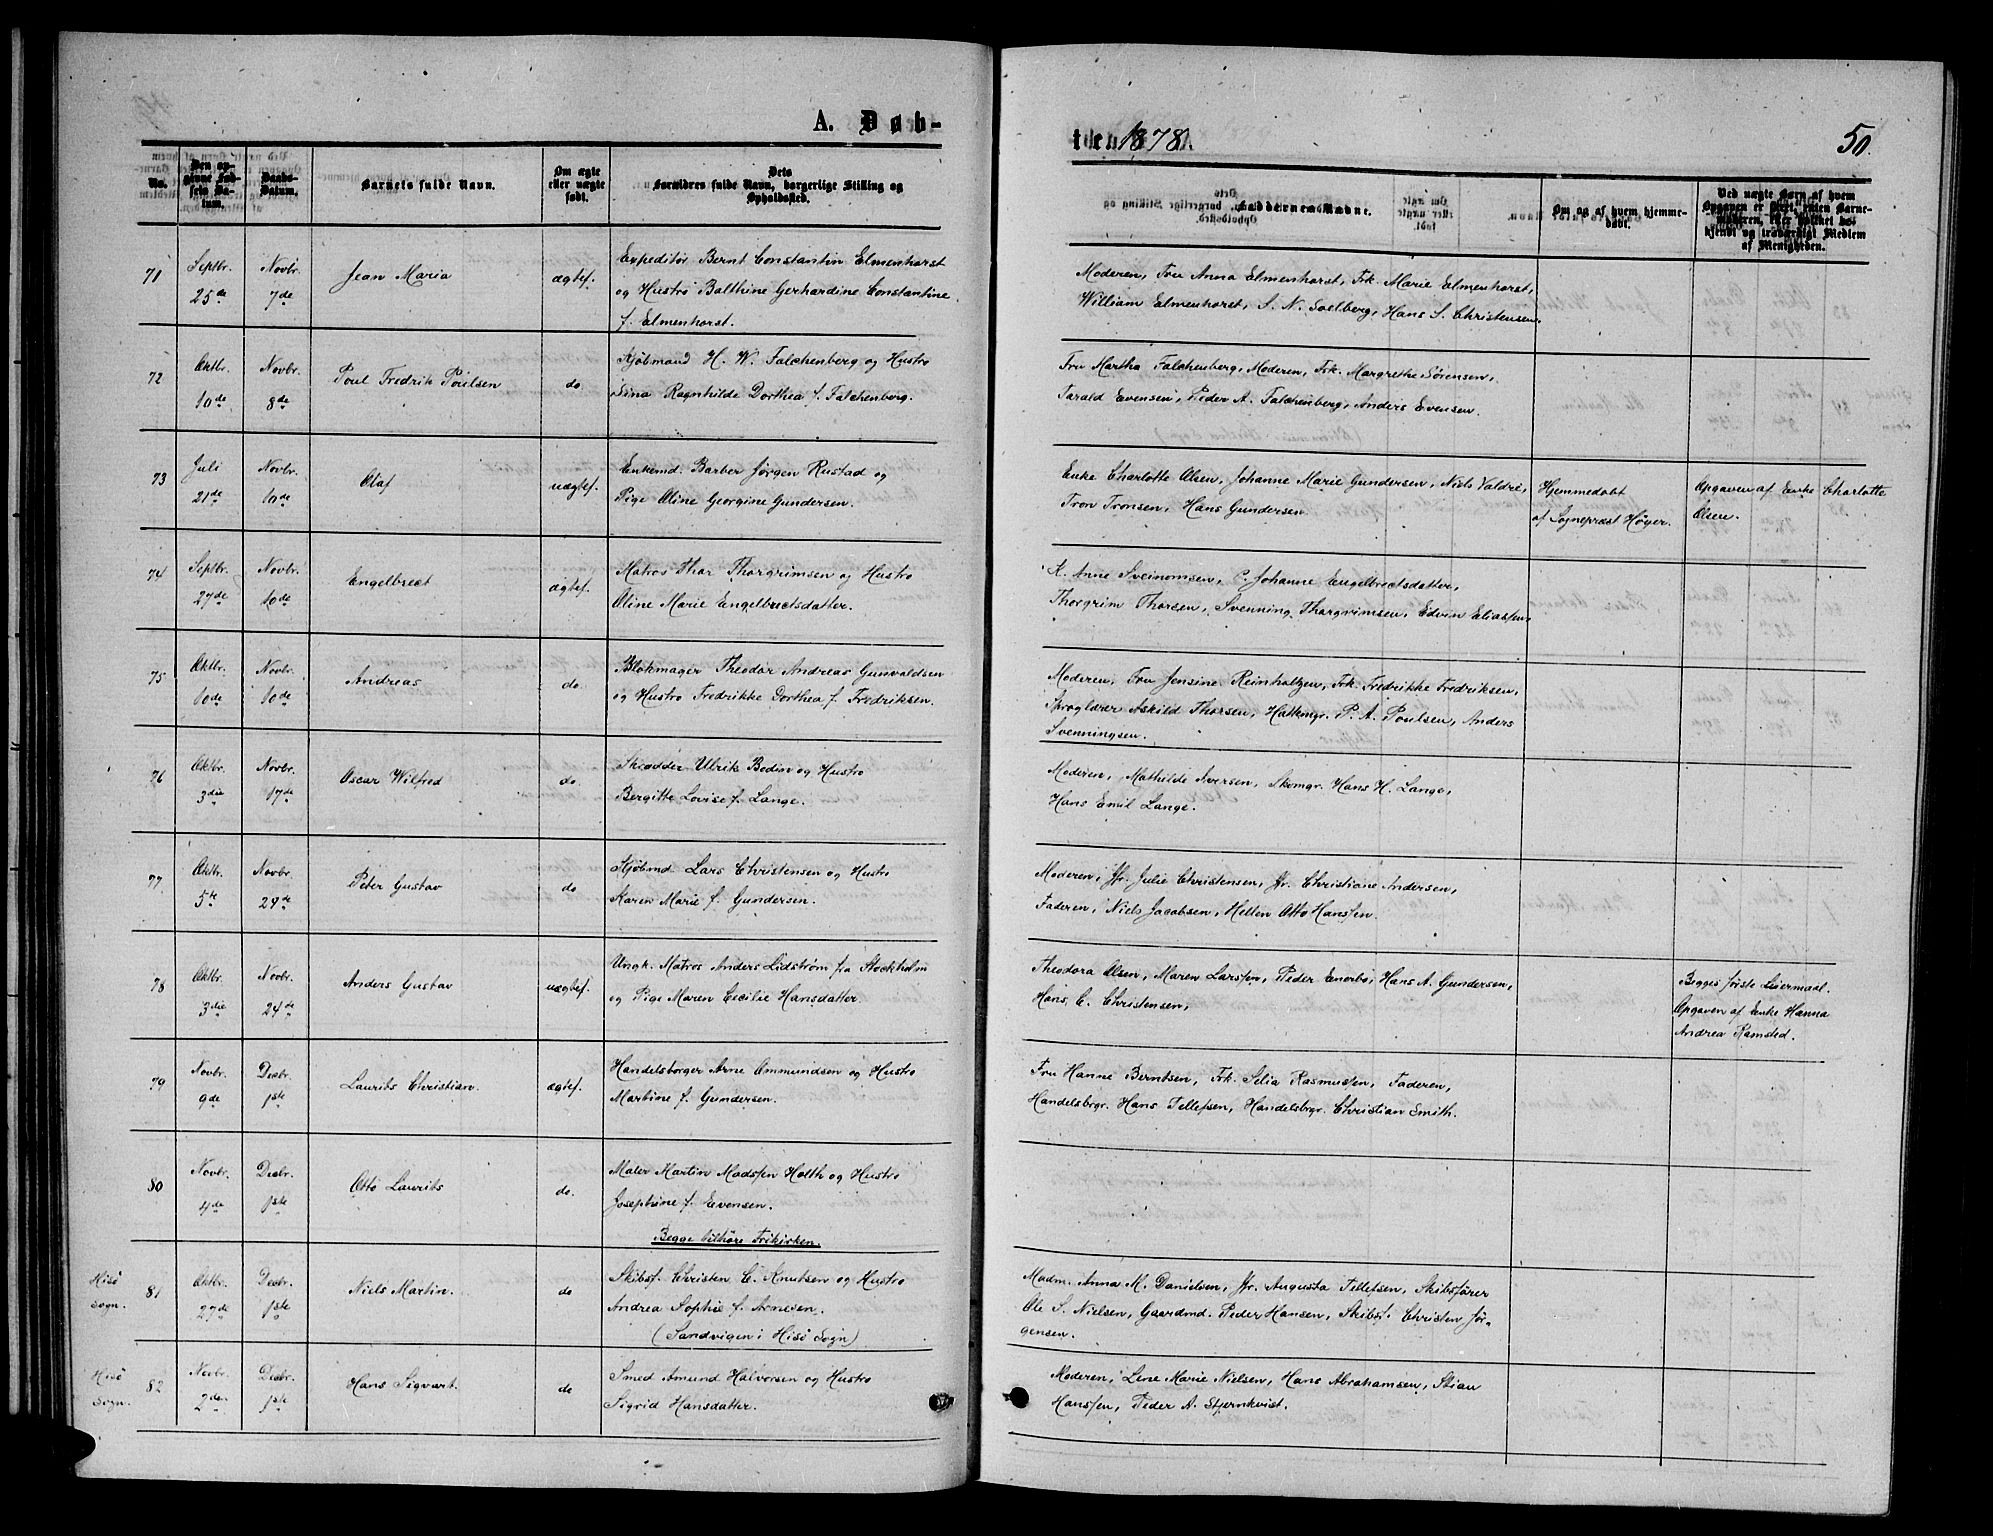 A. Døb-
te i 1878.
50.
No.
Den opgivne Fødsels Datum.
Daabs-Datum.
Barnets fulde Navn.
Om ægte eller uægte født.
Dets Forældres fulde Navn, borgerlige Stilling og Opholdssted.
Faddernes Navne.
Om og af hvem hjemmedøbt.
Ved uægte Børn af hvem Opgaven er skeet, enten Barnemoderen, eller hvilket bekjendt og troværdigt Medlem af Menigheden.
71
Septbr. 25de
Novbr. 7de
Jean Maria
ægtef.
Expeditør Bernt Constantin Elmenhorst
og Hustro Balthine Gerhardine Constantine
f. Elmenhorst.
Moderen, Fru Anna Elmenhorst, Frk. Marie Elmenhorst,
William Elmenhorst, S. N. Soelberg, Hans S. Christensen.
72
Oktbr. 10de
Novbr. 8de
Poul Fredrik Poulsen
do.
Kjøbmand H. W. Falchenberg og Hustro
Sina Ragnhilde Dorthea f. Falchenberg.
Fru Martha Falchenberg, Moderen, Frk. Margrethe Sørensen,
Tarald Evensen, Peder A. Falchenberg, Anders Evensen.
73
Juli 21de
Novbr. 10de
Olaf
uægtef.
Enkemd. Barber Jørgen Rustad og
Pige Oline Georgine Gundersen.
Enke Charlotte Olsen, Johanne Marie Gundersen, Niels Valdre,
Tron Tronsen, Hans Gundersen
Hjemmedøbt
af Sognepræst Høyer.
Opgaven af Enke Charlotte
Olsen.
74
Septbr. 27de
Novbr. 10de
Engelbrect
ægtef.
Matros Thor Thorgrimsen og Hustro
Oline Marie Engelbrectsdatter.
K. Anne Sveinomsen, P. Johanne Engelbrectsdatter,
Thorgrim Thorsen, Svenning Thorgrimsen, Edvin Eliassen
75
Oktbr. 10de
Novbr. 10de
Andreas
do.
Blokmager Theodor Andreas Gunvaldsen
og Hustro Fredrikke Dorthea f. Fredriksen.
Moderen, Fru Jensine Reinholtzen, Frk. Fredrikke Fredriksen,
Sproglærer Askild Thorsen, Hattemgr. P. A. Poulsen, Anders
Svenningsen.
76
Oktbr. 3die
Novbr. 17de
Oscar Wilfred
do.
Skrædder Ulrik Bodin og Hustro
Bergitte Lovise f. Lange.
Moderen, Mathilde Iversen, Skomgr. Hans H. Lange,
Hans Emil Lange.
77
Oktbr. 5te
Novbr. 24de
Peter Gustav
do
Kjøbmd. Lars Christensen og Hustro
Karen Marie f. Gundersen.
Moderen, Jfr. Julie Christensen, Jfr. Christiane Andersen,
Faderen, Niels Jacobsen, Hellen Otto Hanssen.
78
Oktbr. 3die
Novbr. 24de
Anders Gustav
uægtef.
Ungk. Matros Anders Lidstrøm fra Stockholm
og Pige Maren Cecilie Hansdatter
Theodora Olsen, Maren Larssen, Peder Enerbo, Hans A. Gundersen,
Hans C. Christensen,
Begges første Leiermaal.
Opgaven af Enke Hanna
Andrea Ramsted.
79
Novbr. 9de
Decbr. 1ste
Laurits Christian.
ægtef.
Handelsborger Arne Ommundsen og Hustro
Martine f. Gundersen.
Fru Hanne Berntsen, Frk. Selia Rasmussen, Faderen,
Handelsbrgr. Hans Tellefsen, Handelsbrgr. Christian Smith.
80
Novbr. 4de
Decbr. 1ste
Otto Laurits
do.
Maler Martin Madssen Holth og Hustro
Josephine f. Evensen.
Begge tilhøre Frikirken.
Hisø Sogn.
81
Oktbr. 27de
Decbr. 1ste
Niels Martin.
do
Skibsf. Christen C. Knutsen og Hustro
Andrea Sophie f. Arnesen.
(Sandvigen i Hisø Sogn)
Madm. Anna M. Danielsen, Jfr. Augusta Tellefsen, Skibsfører
Ole S. Nielsen, Gaardmd. Peder Hansen, Skibsf. Christen Jør-
gensen.
Hisø Sogn.
82
Novbr. 2den
Decbr. 1ste
Hans Sigvart.
do
Smed Amund Halvorsen og Hustro
Sigrid Hansdatter.
Moderen, Lene Marie Nielsen, Hans Abrahamsen, Stian
Hanssen, Peder A. Stjernkvist.